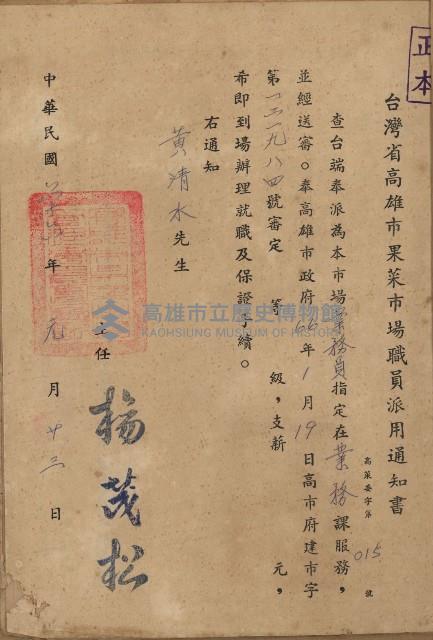 正本
台灣省高雄市果菜市場職員派用通知書
高菜委字第015號
查台端奉派為本市場業務員指定在業務課服務,
並經送審。奉高雄市政府66年1月19日高市府建市字
第一三一九八四號審定 等 級,支薪 元,
希即到場辦理就職及保證手續。
右通知
黃清水先生
主任 楊茂松
中華民國 年元月廿三日
高雄市立歷史博物館
KAOHSIUNG MUSEUM OF HISTORY